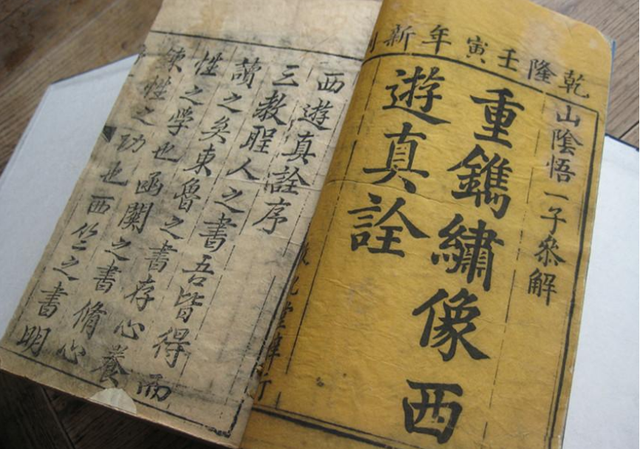 乾隆壬寅年新
山陰悟一子叅解
重鐫繡像西
遊真詮
西遊真詮序
三教聖人之書吾皆得而
讀之矣東魯之書存心養
性之學也函關之書脩心
鍊性之功也西竺之書明